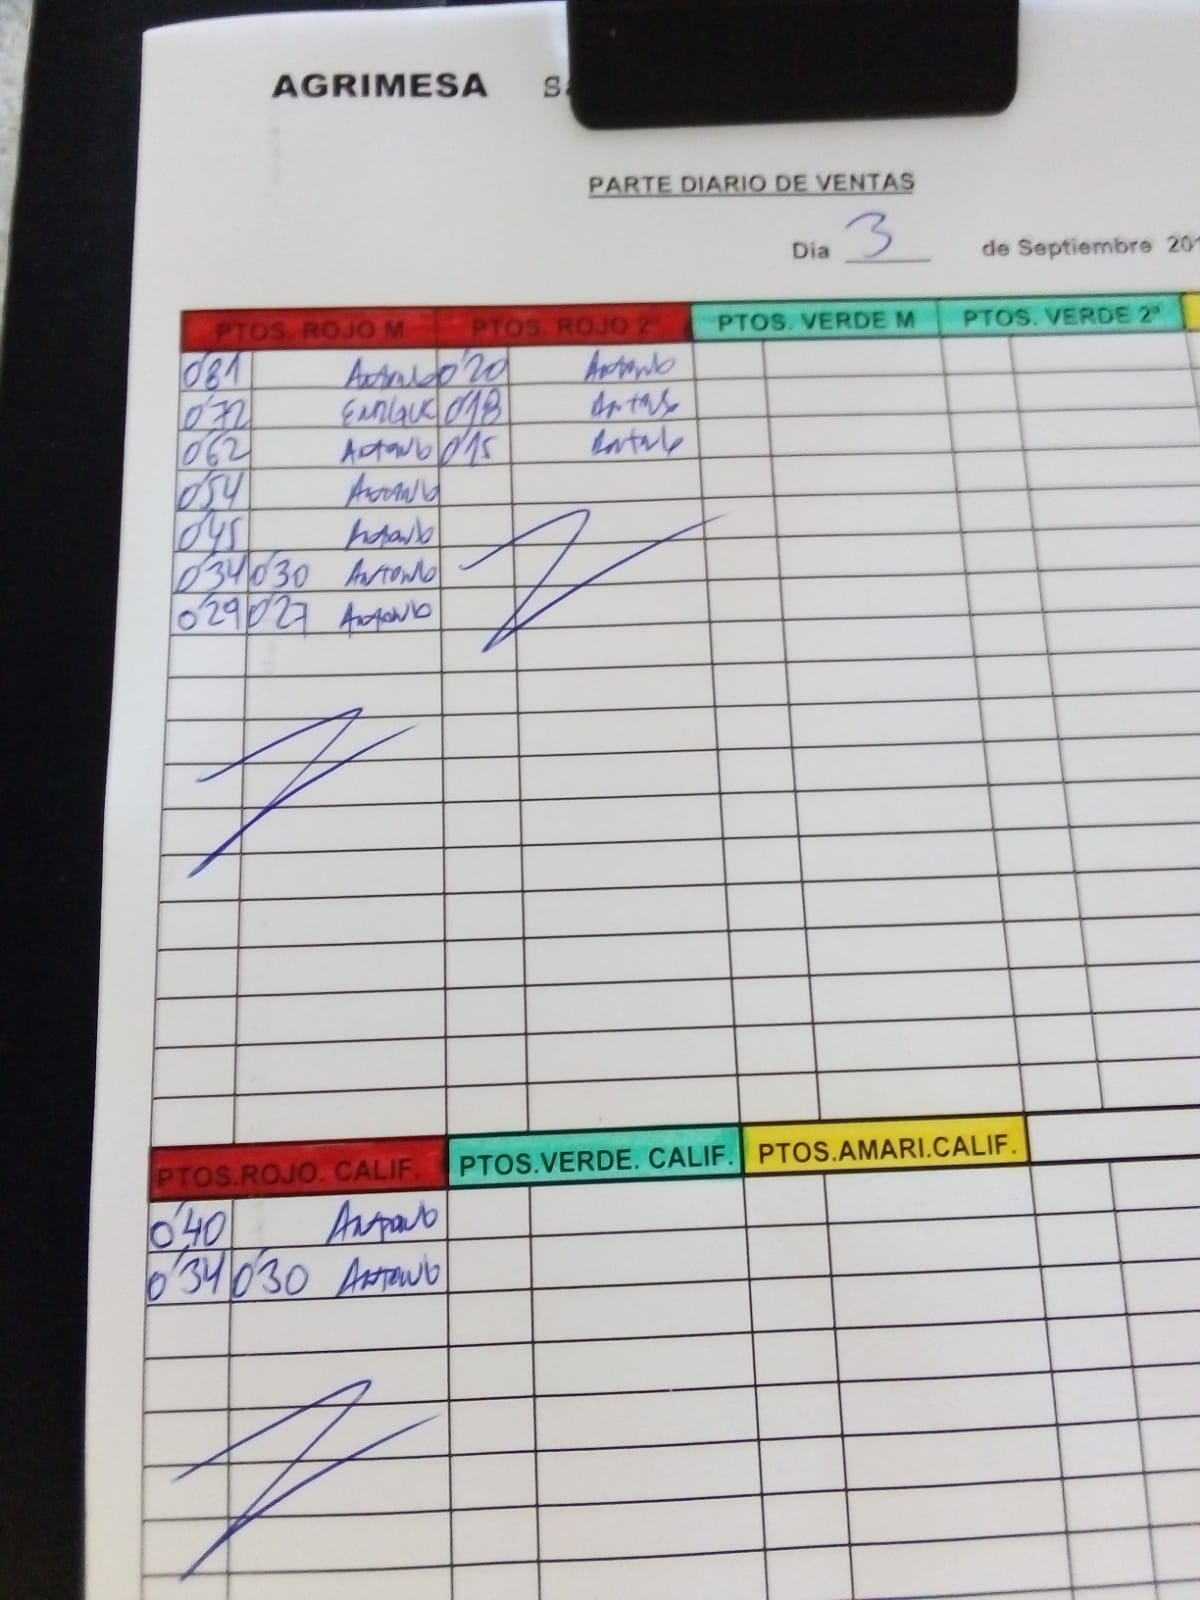 AGRIMESA
PARTE DIARIO DE VENTAS
Día 3 de Septiembre 201
PTOS. ROJO M PTOS. ROJO 2ª PTOS. VERDE M PTOS. VERDE 2ª
0'81 Antonio 0'20 Antonio
0'72 Enrique 0'18 Antonio
0'62 Antonio 0'15 Antonio
0'54 Antonio
0'45 Antonio
0'34 0'30 Antonio
0'29 0'27 Antonio
PTOS.ROJO. CALIF. PTOS.VERDE. CALIF. PTOS.AMARI.CALIF.
0'40 Antonio
0'34 0'30 Antonio